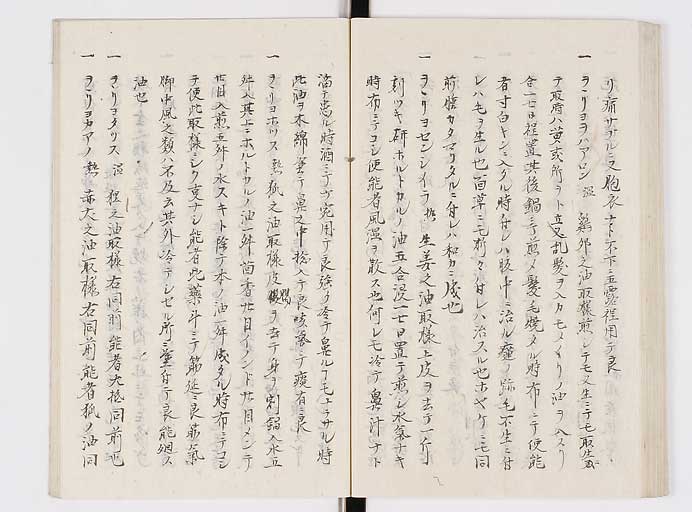 リ痛サスルニ又胞衣ナト不下ニ五露程用テ良
一 ヲヽリヨヲハアロン 温 鷄卵之油取様煎シテモ又生ニテモ取生
テ取時ハ黄ミ或所ヲト 立又乱髪ヲ入カモメ イリノ油ヲ
合一七日程置其後鍋ニテ煎メ髪毛焼タル時布ニテ便能
者寸白キンニ入タル時付レハ腹中ニ治ル瘡ノ跡毛不生ニ付
レハ毛ヲ生ル也 面草ニモ 付レハ治スル也ホヤケニモ同
前 膿カタマリタルニ付レハ和カニ成也
一 ヲヽリヨセンシイラ 熱 生姜之油取様上皮ヲ去テ一斤
刻ツキ研ホルトカルノ油五合浸一七日置テ煎シ水氣ナキ
時布ニテコシ使能者風湿ヲ散ス也何レモ冷テ鼻汁ナト
溜テ悪ル時酒ニテ 用テ良強ク冷テ鼻ルリモナラサル時
此油ヲ木綿ニ 塗テ鼻之中 入テ良咳氣テ痰有ニ良
一 ヲヽリヨホツス 熱 狐之油取様皮腸ヲ去テ身ヲ割鍋入水五
舛入其上ニホルトカルノ油一舛茴香廿目イノンド廿目メンテ
廿目入煎五舛ノ水スキト除テ本ノ油一舛成タル時布ニテコシ
テ使此取様ニシク 能者此藥斗ニテ筋延ニ良筋氣
脚中風之類ハ不及云其外冷テシヒル所ニ塗付テ良能廻ス
油也
一 ヲヽリヨタツス 温 狸之油取様右同前能者大抵同前也
一 ヲヽリヨカアノ 熱 赤犬之油取様右同前能者狐ノ油同